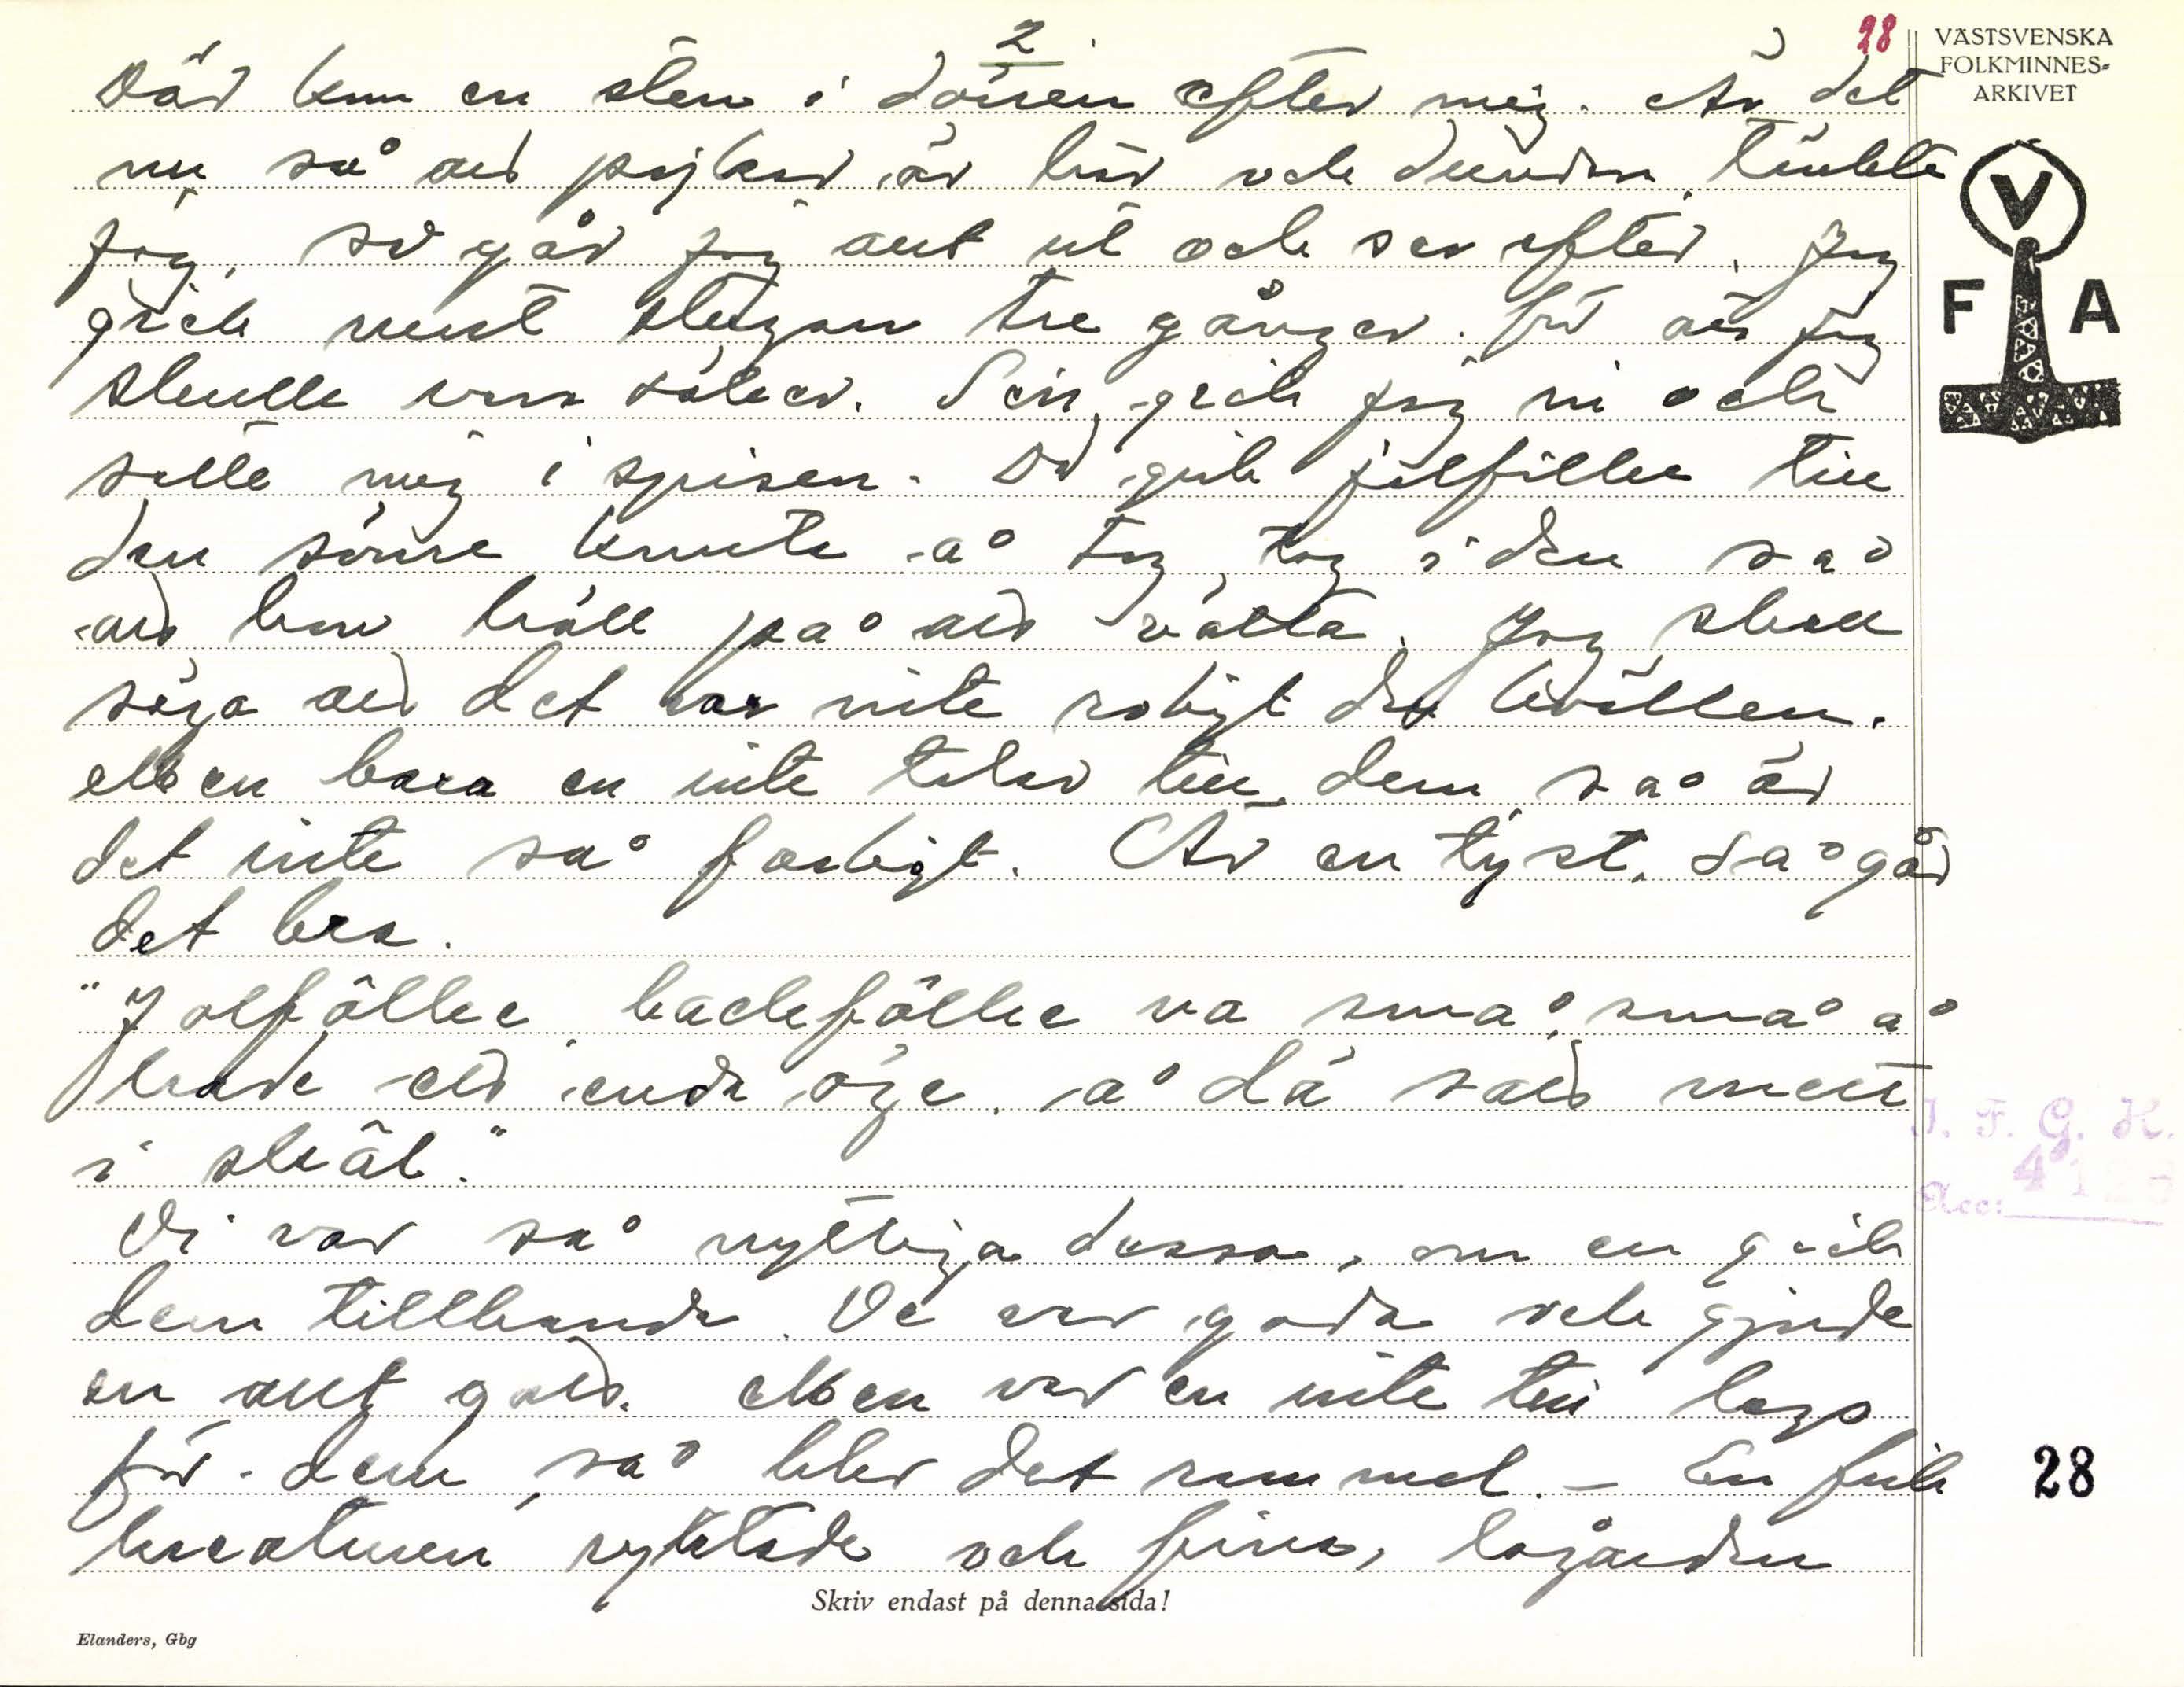 2
28
VÄSTSVENSKA
FOLKMINNES-
ARKIVET
Där kom en sten i dörren efter mig. Är det
nu så att pojkar är här och dundra, tänkte
jag, så går jag aut ut och ser efter. Jag
gick runt stugan tre gånger. för att jag
skulle vara säker. Sen gick jag in och
satte mig i spisen. Då gick jolfille till
den sörre knute å tog, tog i den så
att hon höll på att välta. Jag skall
säga att det var inte roligt den kvällen.
Men bara en inte talar till dem, så är
det inte så farligt. Är en tyst, så går
det bra.
"Jolfölke, backefölke va små, små å
hade ett enda öje, å dä satt mett
i skált."
De var så nyttiga dessa, om en gick
dem tillhanda. De var goda och gjorde
en aut gott. Men var en inte till lags
för dem, så blev det rammel. – En fick
kreaturen ryktade och fina, lagården
V
F A
J. F. G. H.
Acc:
28
Skriv endast på denna sida!
Elanders, Gbg